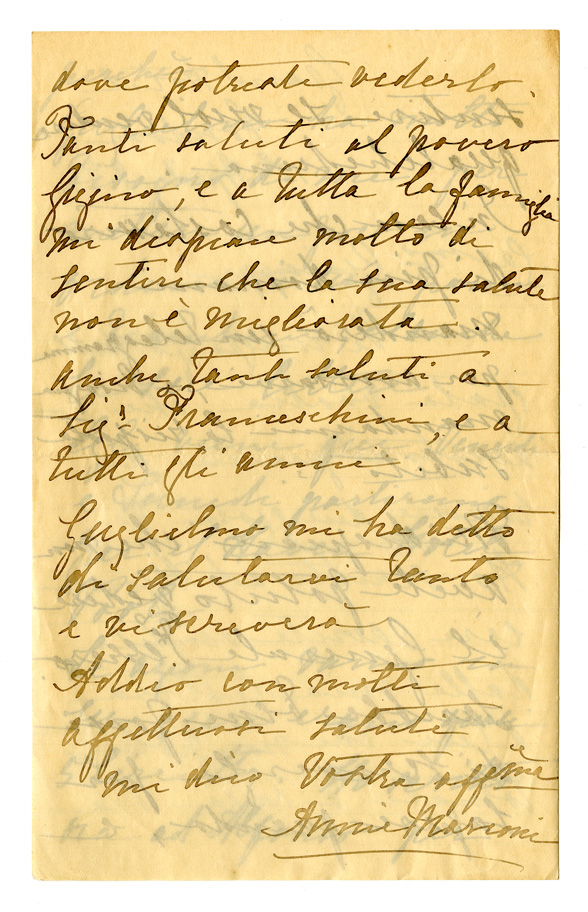 dove potreste vederlo.
Tanti saluti al povero
Gigino, e a tutta la famiglia
mi dispiace molto di
sentire che la sua salute
non è migliorata.
Anche tanti saluti a
Sigr Franceschini, e a
tutti gli amici.
Guglielmo mi ha detto
di salutarvi tanto
e vi scriverà
Addio con molti
affettuosi saluti
mi dico Vostra affma
Annie Marconi